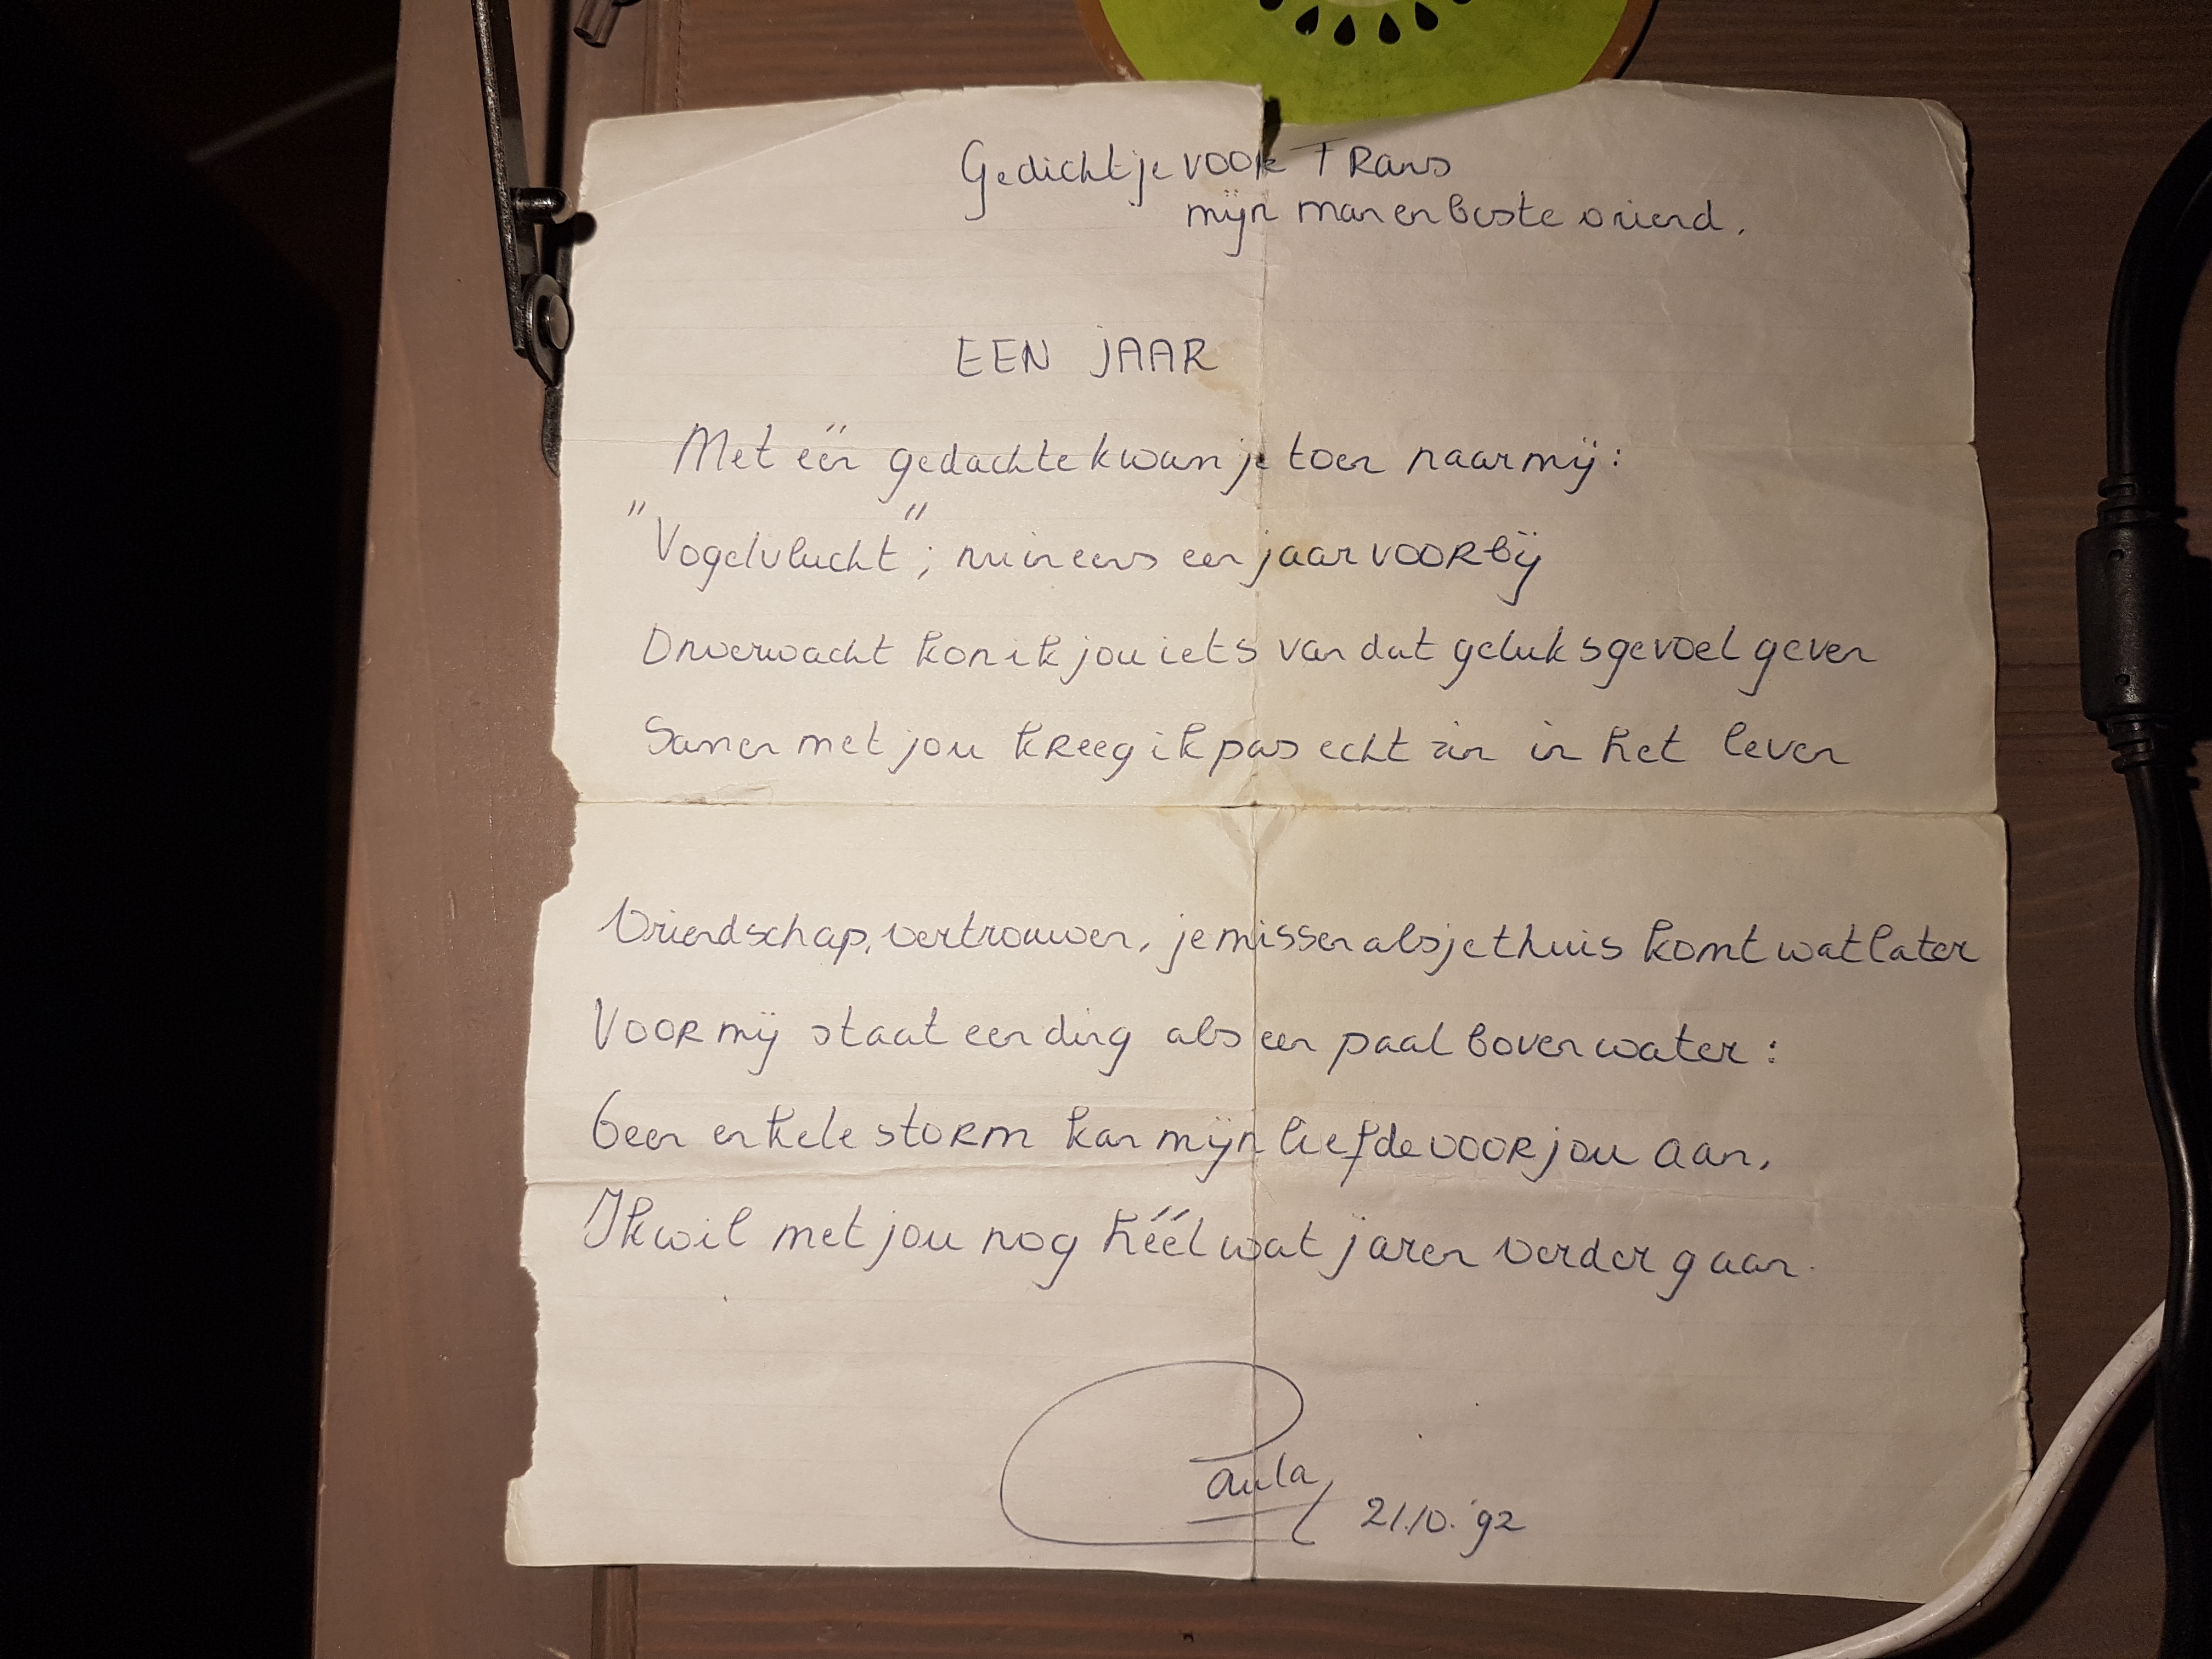 Gedichtje voor Frans
mijn man en beste vriend.
EEN JAAR
Met één gedachte kwam je toen naar mij:
"Vogelvlucht"; nu ineens een jaar voorbij
Onverwacht kon ik jou iets van dat geluksgevoel geven
Samen met jou kreeg ik pas echt zin in het leven
Vriendschap, vertrouwen, je missen als je thuis komt wat later
Voor mij staat een ding als een paal boven water:
Geen enkele storm kan mijn liefde voor jou aan,
Ik wil met jou nog héél wat jaren verder gaan.
Paula
21.10.'92